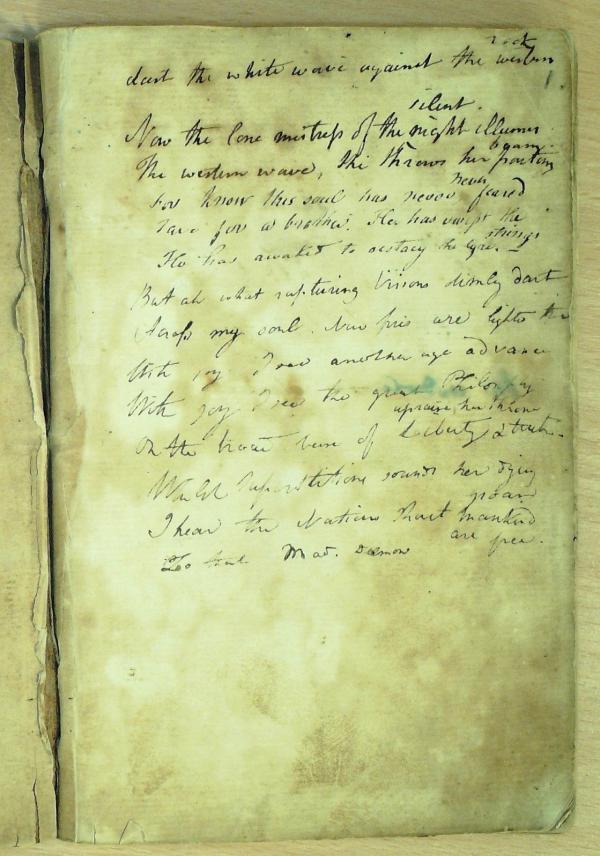 rock
dart the white wave against the western
silent.
Now the lone mistress of the night illumes
beam.
The western wave, she throws her parting
never
For know this soul has never feared
save for a brother. He has swept the
strings
He has awaked to ecstacy the lyre.
But ah what rapturing Visions dimly dart
Across my soul. New fires are lights the
With joy I see another age advance
With joy I see the great Philosophy
upraise her throne
On the broad base of Liberty & truth.
Whilst Superstition sounds her dying
groan
I hear the Nations shout mankind
are free.
Mad. daemon